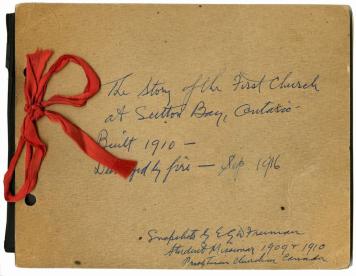 The Story of the First Church
at Sutton Bay, Ontario -
Built 1910 -
Destroyed by fire - Sep 1916
Snapshots by E G D Freeman
Student Missionary 1909 & 1910
Presbyterian Church in Canada